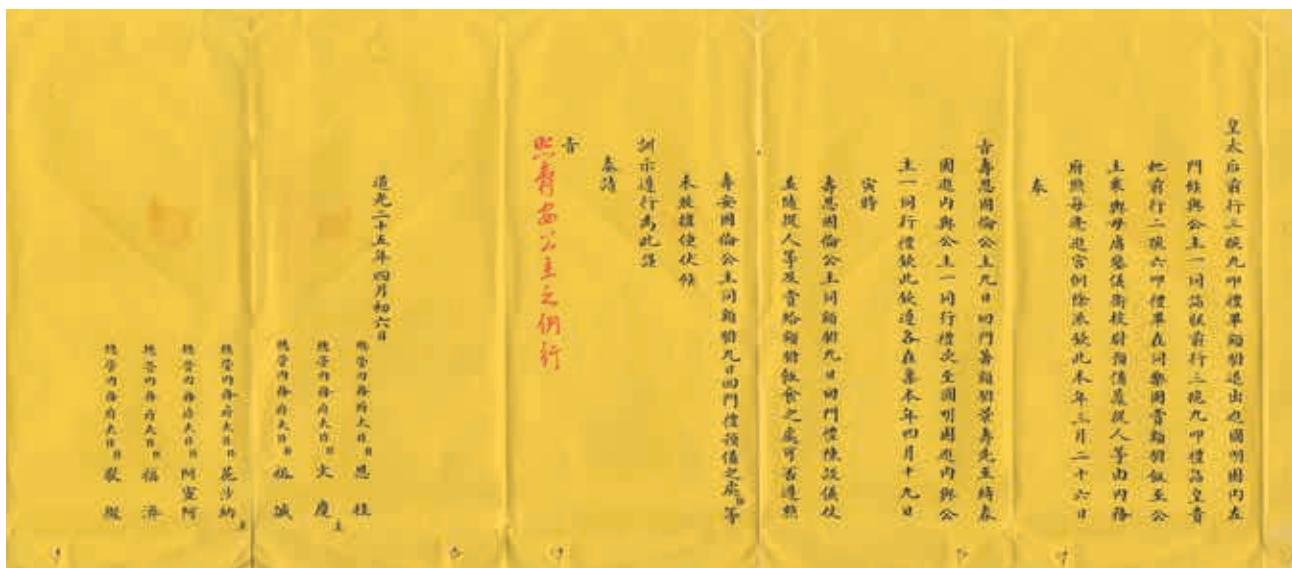 皇太后前行三跪九叩禮畢額駙退出進圓明園內左
門候與公主一同詣朕前行三跪九叩禮詣皇貴
妃前行二跪六叩禮畢在同樂園賞額駙飯至公
主乘輿母庸鑾儀衛校尉預備墓提人等由內務
府照每逢進宮例除派欽此本年三月二十六日
奉
旨壽恩固倫公主九日回門著額駙景壽先至綺春
園進內與公主一同行禮次至圓明園進內與公
主一同行禮欽此欽遵各在案本年四月十九日
寅時
壽恩固倫公主同額駙九日回門禮陳設儀仗
並隨從人等及賞給額駙飯食之處可否遵照
壽安固倫公主同額駙九日回門禮預備之處臣等
未敢擅便伏候
訓示遵行為此謹
奏請
旨
照壽安公主之例行
道光二十五年四月初六日
總管內務府大臣臣恩桂
總管內務府大臣臣文慶
總管內務府大臣臣誠
總管內務府大臣臣花沙納
總管內務府大臣臣阿靈阿
總管內務府大臣臣福濟
總管內務府大臣臣敬